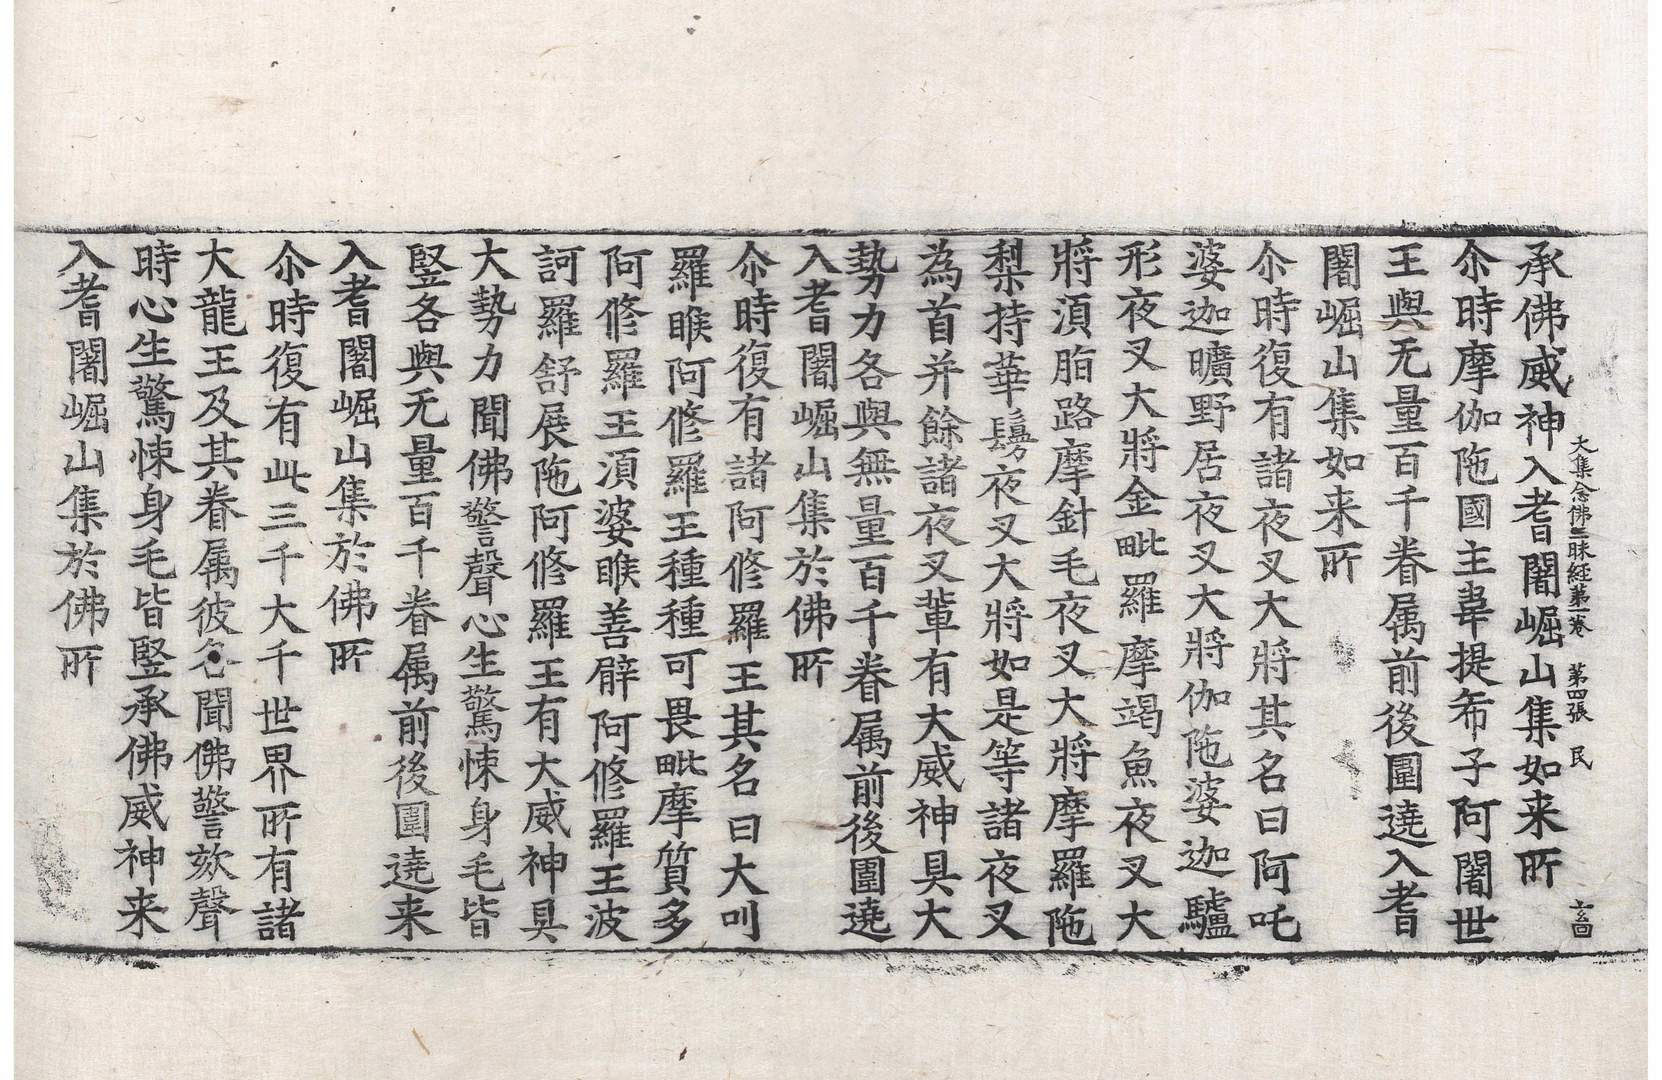 大集念佛三昧経第一卷　第四張　民
承佛威神入耆闍崛山集如来所
尒時摩伽陁國主韋提希子阿闍世
王與无量百千眷属前後圍遶入耆
闍崛山集如来所
尒時復有諸夜叉大將其名曰阿吒
婆迦曠野居夜叉大將伽陁婆迦驢
形夜叉大將金毗羅摩竭魚夜叉大
將湏脂路摩針毛夜叉大將摩羅陁
梨持華鬘夜叉大將如是等諸夜叉
為首并餘諸夜叉軰有大威神具大
勢力各與無量百千眷属前後圍遶
入耆闍崛山集於佛所
尒時復有諸阿修羅王其名曰大叫
羅睺阿修羅王種種可畏毗摩質多
阿修羅王湏婆睺善臂阿修羅王波
訶羅舒展陁阿修羅王有大威神具
大勢力聞佛警聲心生驚悚身毛皆
竪各與无量百千眷属前後圍遶来
入耆闍崛山集於佛所
尒時復有此三千大千世界所有諸
大龍王及其眷属彼名聞佛警欬聲
時心生驚悚身毛皆竪承佛威神来
入耆闍崛山集於佛所